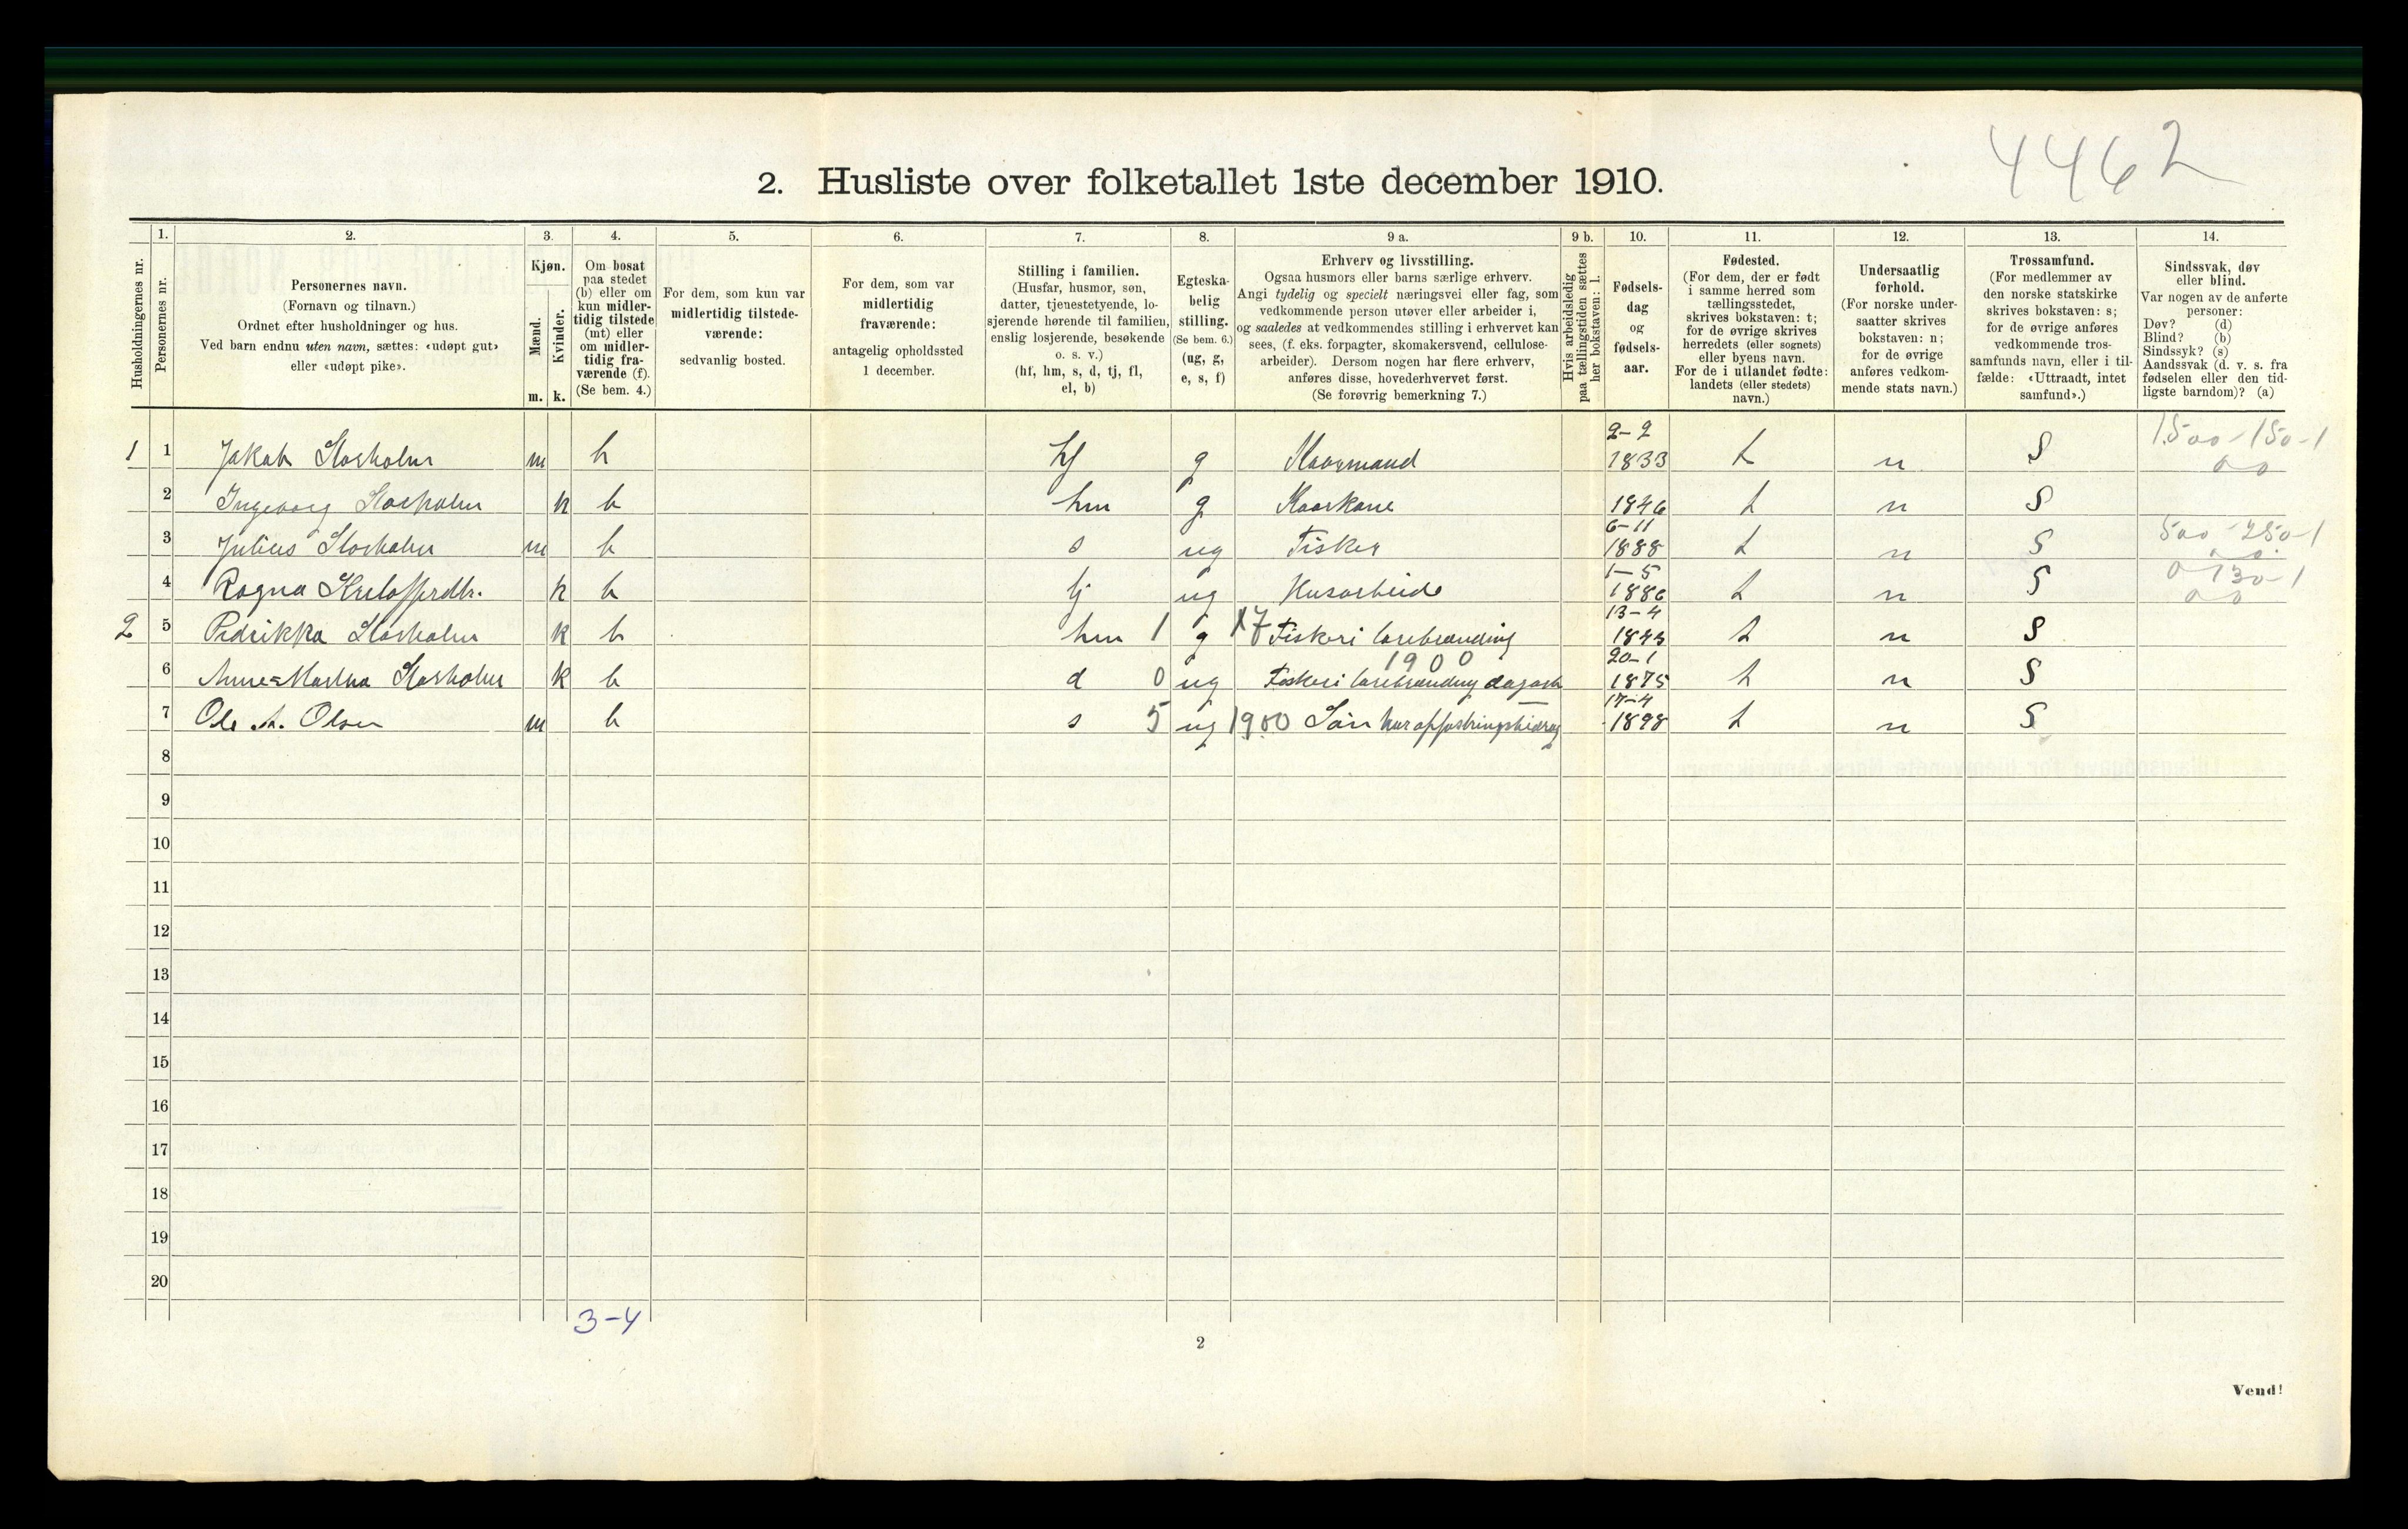 4462
2. Husliste over folketallet 1ste december 1910.
Husholdningernes nr.
1.
Personernes nr.
2.
Personernes navn.
(Fornavn og tilnavn.)
Ordnet efter husholdninger og hus.
Ved barn endnu uten navn, sættes: «udøpt gut»
eller «udøpt pike».
3.
Kjøn.
Mænd.
m.
Kvinder.
k.
4.
Om bosat
paa stedet
(b) eller om
kun midler-
tidig tilstede
(mt) eller
om midler-
tidig fra-
værende (f).
(Se bem. 4.)
5.
For dem, som kun var
midlertidig tilstede-
værende:
sedvanlig bosted.
6.
For dem, som var
midlertidig
fraværende:
antagelig opholdssted
1 december.
7.
Stilling i familien.
(Husfar, husmor, søn,
datter, tjenestetyende, lo-
sjerende hørende til familien,
enslig losjerende, besøkende
o. s. v.)
(hf, hm, s, d, tj, fl,
el, b)
8.
Egteska-
belig
stilling.
(Se bem. 6.)
(ug, g,
e, s, f)
9 a.
Erhverv og livsstilling.
Ogsaa husmors eller barns særlige erhverv.
Angi tydelig og specielt næringsvei eller fag, som
vedkommende person utøver eller arbeider i,
og saaledes at vedkommendes stilling i erhvervet kan
sees, (f. eks. forpagter, skomakersvend, cellulose-
arbeider). Dersom nogen har flere erhverv,
anføres disse, hovederhvervet først.
(Se forøvrig bemerkning 7.)
9 b.
Hvis arbeidsledig
paa tællingstiden sættes
her bokstaven: l.
10.
Fødsels-
dag
og
fødsels-
aar.
11.
Fødested.
(For dem, der er født
i samme herred som
tællingsstedet,
skrives bokstaven: t;
for de øvrige skrives
herredets (eller sognets)
eller byens navn.
For de i utlandet fødte:
landets (eller stedets)
navn.)
12.
Undersaatlig
forhold.
(For norske under-
saatter skrives
bokstaven: n;
for de øvrige
anføres vedkom-
mende stats navn.)
13.
Trossamfund.
(For medlemmer av
den norske statskirke
skrives bokstaven: s;
for de øvrige anføres
vedkommende tros-
samfunds navn, eller i til-
fælde: «Uttraadt, intet
samfund».)
14.
Sindssvak, døv
eller blind.
Var nogen av de anførte
personer:
Døv? (d)
Blind? (b)
Sindssyk? (s)
Aandssvak (d. v. s. fra
fødselen eller den tid-
ligste barndom)? (a)
1 1 Jakob Storholm m b hf g Kaarmand 2-2 1833 t n S 1500-150-1 0 0
2 Ingeborg Storholm k b hm g Kaarkone 1846 t n S
3 Julius Storholm m b s ug Fisker 6-11 1888 t n S 500-250-1
4 Ragna k b tj ug Husarbeide 1-5 1886 t n S 0 130-1 0 0
2 5 Pedrikka Storholm k b hm 1 g X7 Fiskeri 13-4 t n S
6 Storholm k b d 0 ug 1900 Fiskeri 20-1 1875 t n S
7 Ole A. Olsen m b s 5 ug 1900 Søn 17-4 1898 t n S
8
9
10
11
12
13
14
15
16
17
18
19
20
3-4
2
Vend!